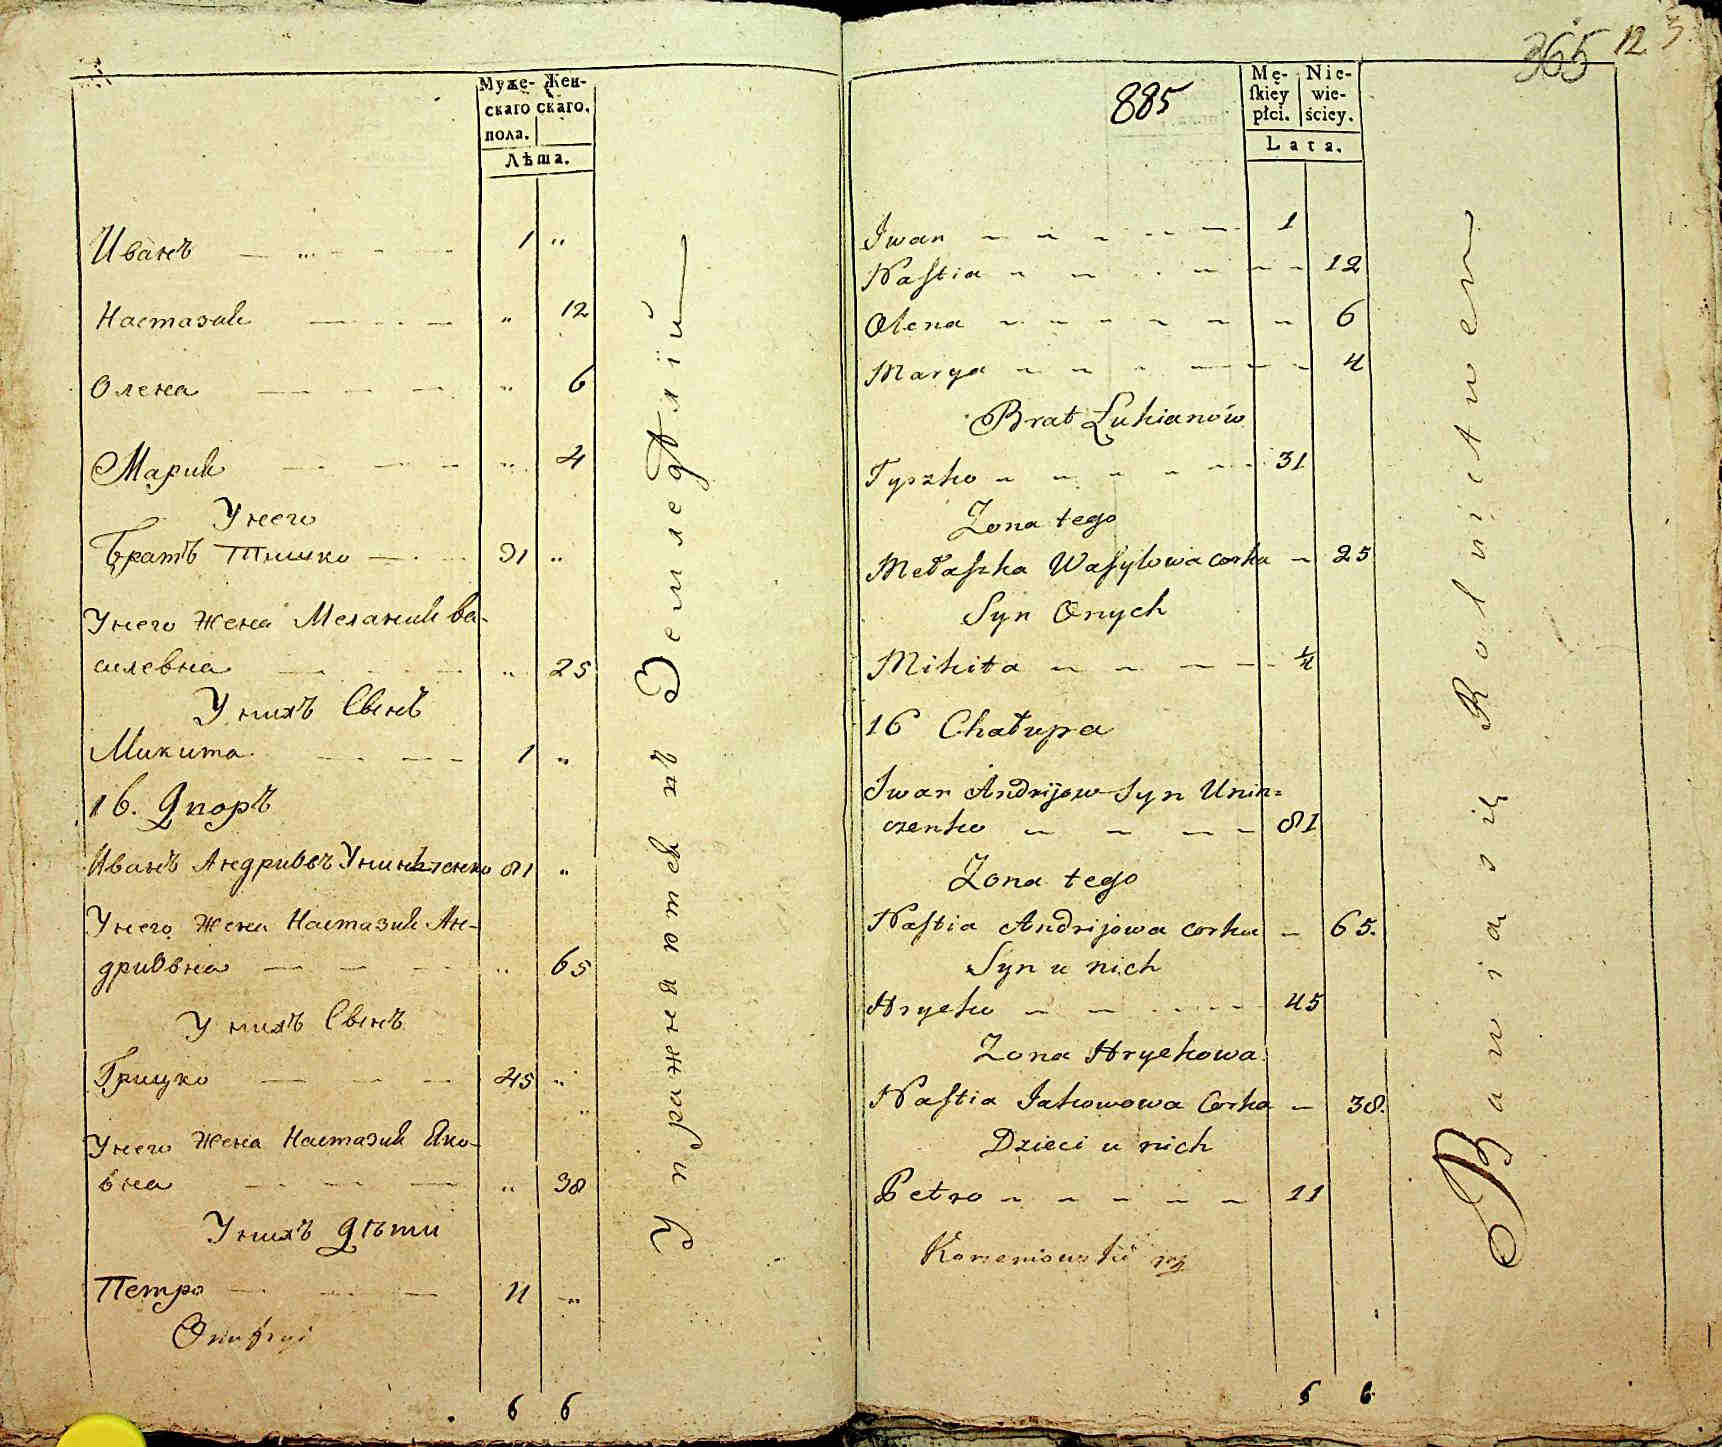 Муже- Жен-
скаго скаго.
пола.
Лѣта.
Иванъ 1 "
Настазия " 12
Олена " 6
Мария " 4
У него
Братъ Тишко 31 "
У него жена Мелания Ва-
силевна " 25
У нихъ Сынъ
Микита 1 "
16. Дворъ
Иванъ Андриевъ Унинченко 81 "
У него жена Настазия Ан-
дриевна " 65
У нихъ Сынъ
Грицко 45 "
У него жена Настазия Яко-
вна " 38
У нихъ дѣти
Петро 11 "
6 6
Упражняются въ Земледѣлiи
365 12 3
885
Mę- Nie-
ſkiey wie-
płci. ściey.
Lata.
Jwan 1
Naſtia 12
Olena 6
Marya 4
Brat Łukianów
Tyszko 31
Zona tego
Mełaſzka Waſylowa corka 25
Syn Onych
Mikita 1/4
16 Chałupa
Jwan Andrijow Syn Unin=
czenko 81
Zona tego
Naſtia Andrijowa corka 65.
Syn u nich
Hrycko 45
Zona Hryckowa
Naſtia Jakowowa Corka 38.
Dzieci u nich
Petro 11
6 6
Bawia się Rolnictwem